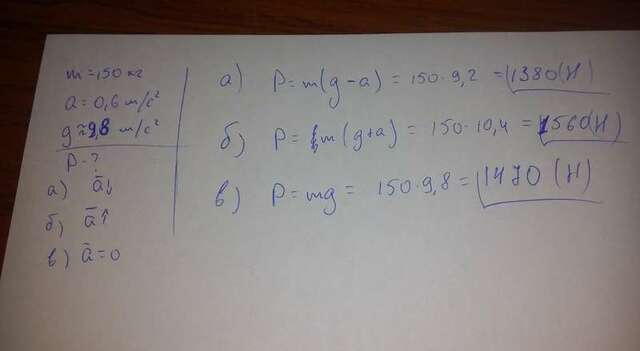 m = 150 кг
a = 0,6 m/c²
g ≈ 9,8 m/c²
P - ?
а) a̅↓
б) a̅↑
в) a̅ = 0
а) P = m(g - a) = 150 · 9,2 = 1380 (Н)
б) P = m(g + a) = 150 · 10,4 = 1560 (Н)
в) P = mg = 150 · 9,8 = 1470 (Н)